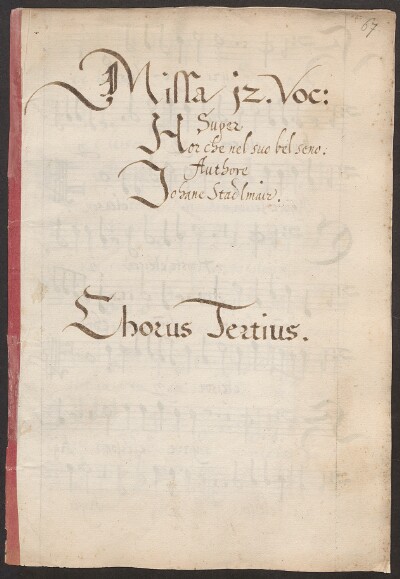 67
Missa j2. Voc:
Super
Hor che nel suo bel seno:
Authore
Johane Stadlmair.
Chorus Tertius.